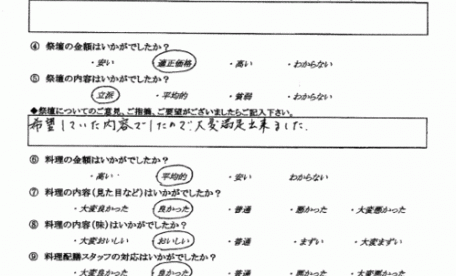 ④ 祭壇の金額はいかがでしたか？
・安い 適正価格 ・高い ・わからない
⑤ 祭壇の内容はいかがでしたか？
立派 ・平均的 ・貧弱 ・わからない
◆祭壇についてのご意見、ご指摘、ご要望がございましたらご記入下さい。
希望していた内容でしたので大変満足出来ました。
⑥ 料理の金額はいかがでしたか？
・高い 平均的 ・安い わからない
⑦ 料理の内容(見た目など)はいかがでしたか？
・大変良かった 良かった ・普通 ・悪かった ・大変悪かった
⑧ 料理の内容(味)はいかがでしたか？
・大変おいしい おいしい ・普通 ・まずい ・大変まずい
⑨ 料理配膳スタッフの対応はいかがでしたか？
・大変良かった 良かった ・普通 ・悪かった ・大変悪かった